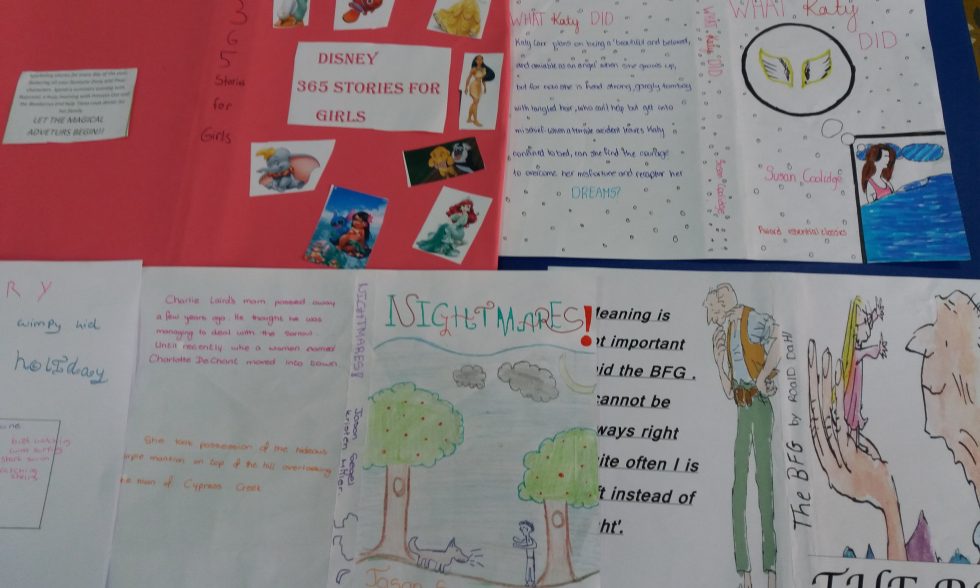 365
Stories
for
Girls
LET THE MAGICAL
ADVETURS BEGIN!!
DISNEY
365 STORIES FOR
GIRLS
WHAT Katy DID
Katy Carr plans on being a beautiful and beloved,
and amiable as an angel when she grows up,
but for now she in fact strong, gangly tomboy
with tangled hair, who can't help but get into
mischief. when a terrible accident leaves Katy
confined to bed, can she find the courage
to overcome her misfortune and recapter her
DREAMS?
WHAT Katy DID
Susan Coolidge
WHAT Katy
DID
Susan Coolidge
Award essential classes
R Y
wimpy kid
holiday
Charlie Laird's mom passed away
a few years ago. He thought he was
managing to deal with the sorrow.
Until recently whe a women named
Charlotte DeChant moved into town
She took possession of the hideous
mantion on top of the hill overlooking
town of Cypress Creek
NIGHTMARES!
Jason Segel
Kirsten Miller
NIGHTMARES!
Jason S
Meaning is
important
id the BFG.
cannot be
ways right
ite often I is
ft instead of
ht'.
The BFG by ROALD DAHL
THE B